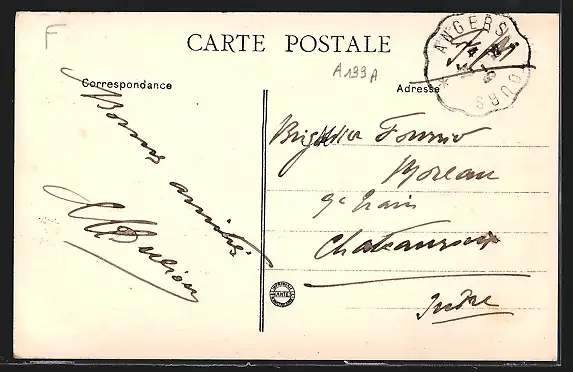 F
CARTE POSTALE
A199A
ANGERS
TOURS
Correspondance
Adresse
Bonne amitié
Brigadier Fournier
Moreau
9e train
Chateauroux
Indre
NANTES